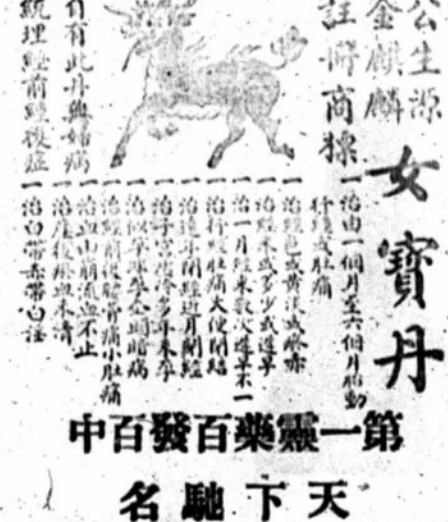 公生源
金麒麟
註冊商標
女寶丹
一治由一個月至六個月胎動
行經或肚痛
一治經色或黃淡或瘀赤
一治經來或多少或遲早
一治一月經來數次遲早不一
一治行經肚痛大便閉結
一治遠年閉經近月閉經
一治子宮寒冷多年未孕
一治似孕非孕
一治經前後腰骨痛小肚痛
一治血山崩流血不止
一治產後瘀血未清
一治白帶赤帶
自有此丹無婦病
統理經前經後症
第一靈藥百發百中
天下馳名